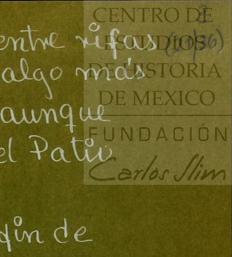 CENTRO DE
ESTUDIOS
DE HISTORIA
DE MEXICO
FUNDACIÓN
Carlos Slim
entre rifas
algo más
aunque
el Patio
fin de